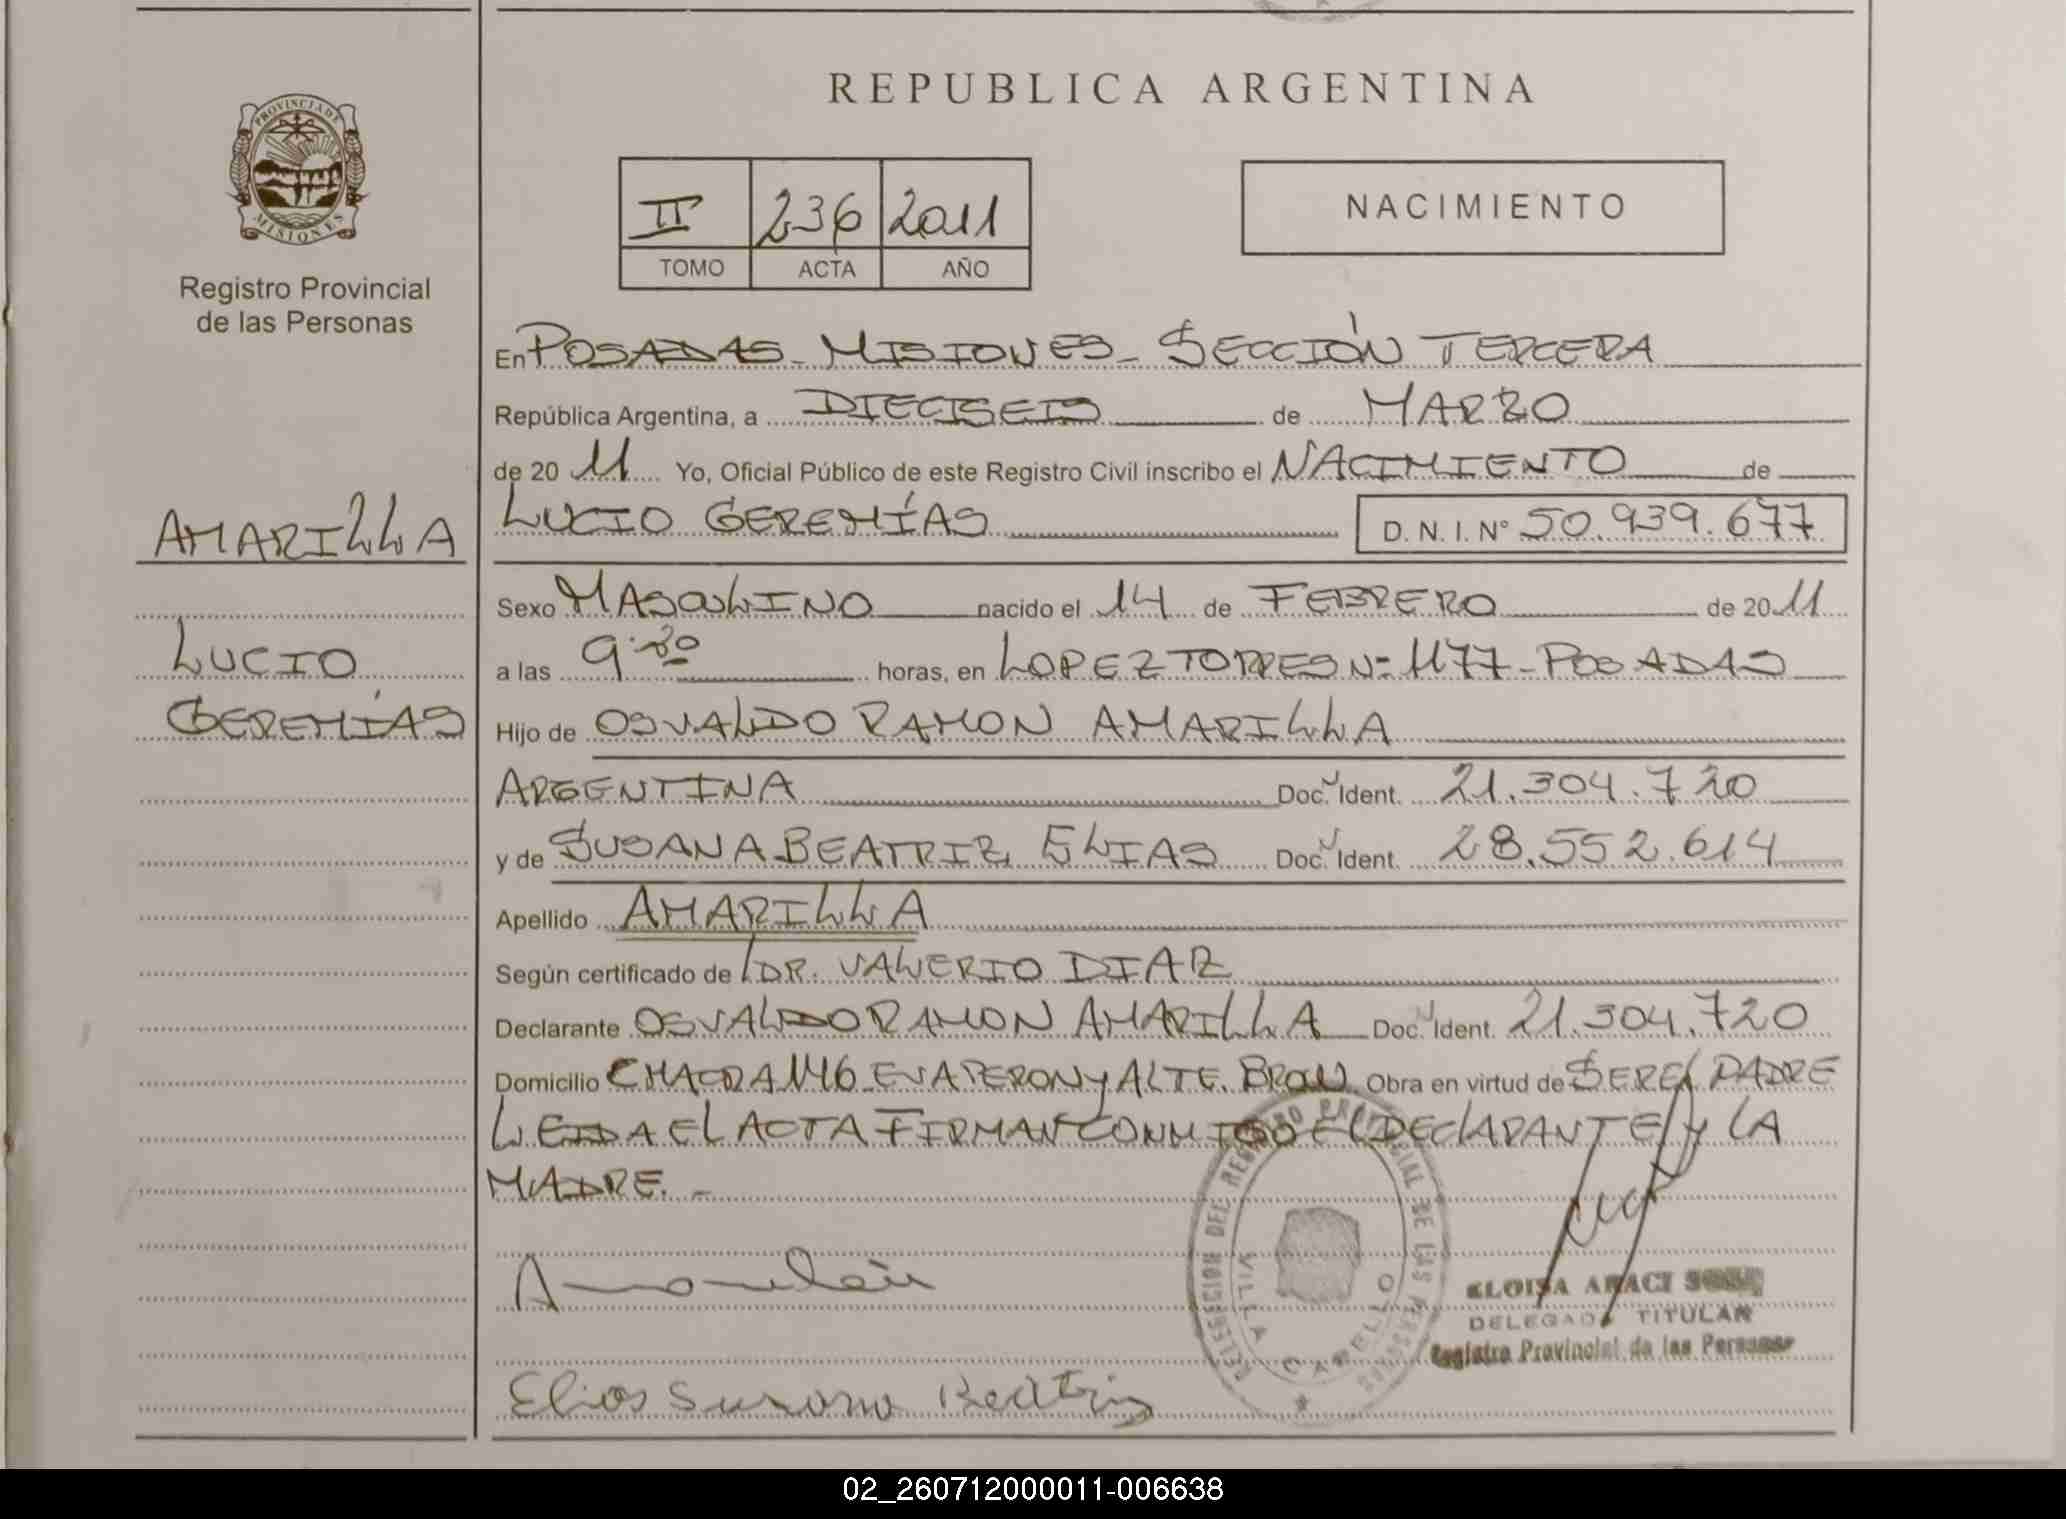 REPUBLICA ARGENTINA
PROVINCIA DE
MISIONES
Registro Provincial
de las Personas
II 236 2011
TOMO ACTA AÑO
NACIMIENTO
En POSADAS - MISIONES - SECCIÓN TERCERA
República Argentina, a DIECISEIS de MARZO
de 20 11 Yo, Oficial Público de este Registro Civil inscribo el NACIMIENTO de
AMARILLA
LUCIO GEREMÍAS D.N.I. N° 50.939.677
Sexo MASCULINO nacido el 14 de FEBRERO de 20 11
LUCIO
GEREMÍAS
a las horas, en LOPEZ TORRES N= 1177 - POSADAS
Hijo de OSVALDO RAMON AMARILLA
ARGENTINA Doc. Ident. 21.304.720
y de SUSANA BEATRIZ ELIAS Doc. Ident. 28.552.614
Apellido AMARILLA
Según certificado de DR. VALERIO DIAZ
Declarante OSVALDO RAMON AMARILLA Doc. Ident. 21.304.720
Domicilio CHACRA 146 EVA PERON y ALTE. BROW Obra en virtud de SER EL PADRE
LEIDA EL ACTA FIRMAN CONMIGO EL DECLARANTE y LA
MADRE. -
DEL REGISTRO PROVINCIAL DE LAS PERSONAS
VILLA CABELLO
ELOISA ARACI
DELEGADA TITULAR
Registro Provincial de las Personas
Elias Susana Beatriz
02_260712000011-006638